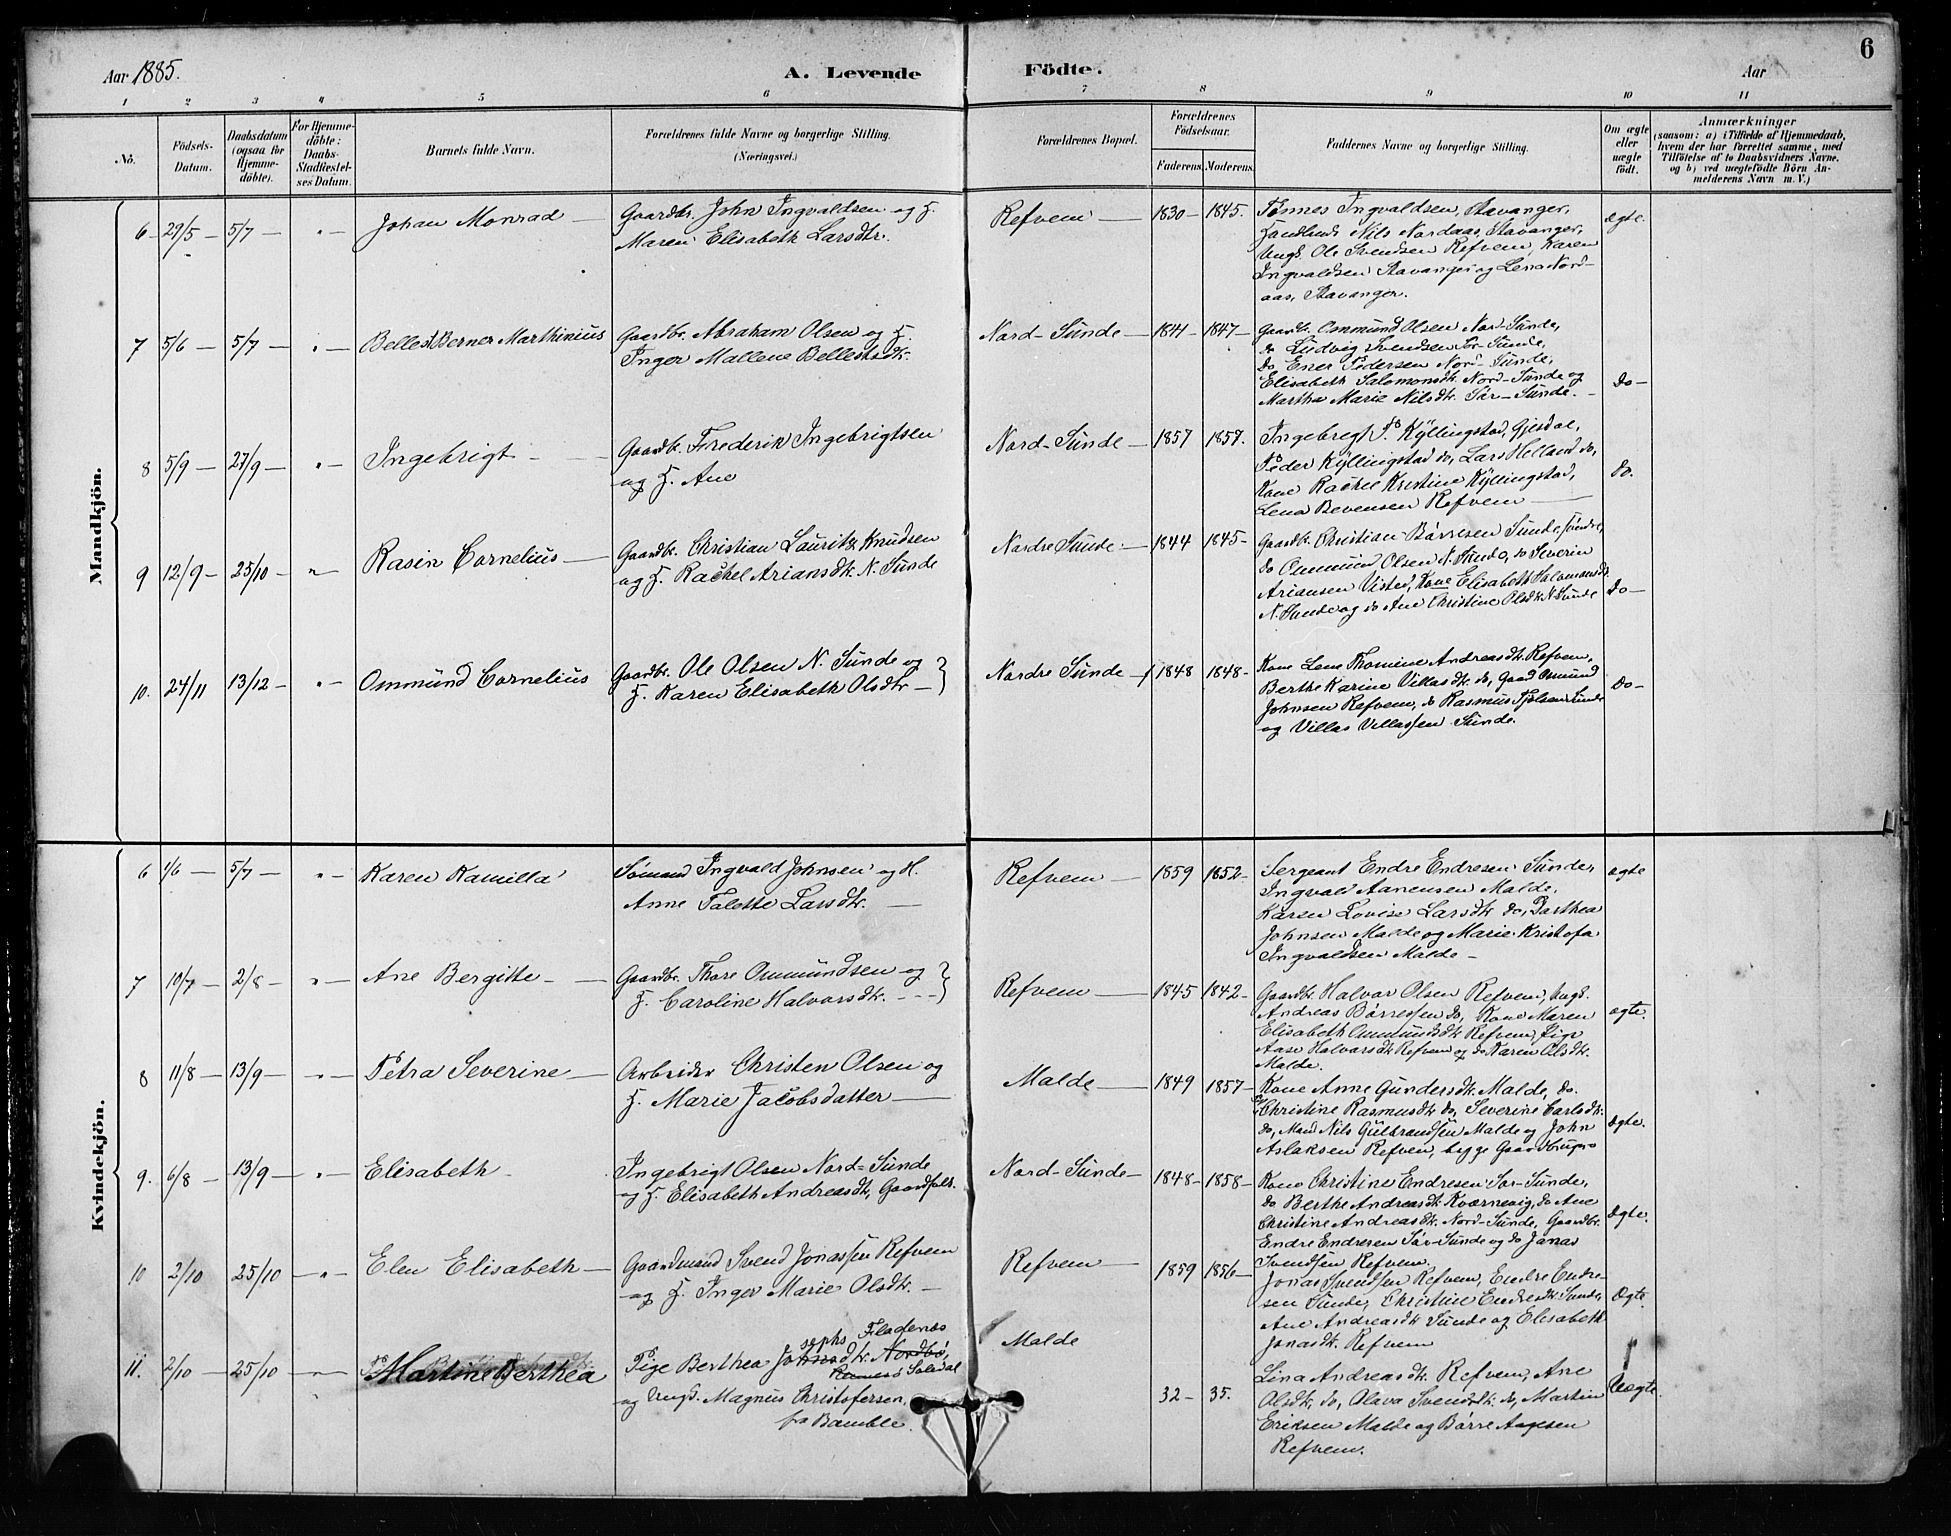 Aar 1885.
A. Levende Födte.
Aar
6
1 2 3 4 5 6 7 8 9 10 11
No.
Födsels-Datum.
Daabsdatum (ogsaa for Hjemme-döbte).
For Hjemme-döbte: Daabs-Stadfæstel-ses Datum.
Barnets fulde Navn.
Forældrenes fulde Navne og borgerlige Stilling. (Næringsvei.)
Forældrenes Bopæl.
Forældrenes Födselsaar.
Faderens. Moderens.
Faddernes Navne og borgerlige Stilling.
Om ægte eller uægte födt.
Anmærkninger
(saasom: a) i Tilfælde af Hjemmedaab,
hvem der har forrettet samme, med
Tilföielse af to Daabsvidners Navne,
og b) ved uægtefödte Börn An-
melderens Navn m. V.)
Mandkjön.
6 29/5 5/7 " Johan Monrad
Gaardbr. John Ingvaldsen og H.
Maren Elisabeth Larsdtr.
Refvem 1830 1845.
Tønnes Ingvaldsen, Stavanger,
Handlende Nils Nordaas, Stavanger,
Ungk. Ole Svendsen Refvem, Karen
Ingvaldsen Stavanger og Lena Nord-
aas, Stavanger.
ægte.
7 5/6 5/7 " Bellest Berner Marthinius
Gaardbr. Abraham Olsen og H.
Inger Mallene Bellestsdtr.
Nord-Sunde 1841 1847
Gaardbr. Ommund Olsen Nord-Sunde,
do Ludvig Svendsen Sør-Sunde,
do Ener Pedersen Nord-Sunde,
Elisabeth Salomonsdtr. Nord-Sunde og
Martha Marie Nilsdtr. Sør-Sunde.
Do
8 5/9 27/9 " Ingebrigt
Gaardbr. Frederik Ingebrigtsen
og H. Ane
Nord-Sunde 1857 1857.
Ingebregt P. Kyllingstad, Gjesdal,
Peder Kyllingstad do, Lars Helland do,
Kone Rachel Kristine Kyllingstad,
Lena Bevensen Refvem
Do.
9 12/9 25/10 " Rasin Cornelius
Gaardbr. Christian Lauritz Knudsen
og H. Rachel Ariansdtr. N. Sunde
Nordre Sunde 1844 1845
Gaardbr. Christian Børresen Sunde Søndre,
do Ommund Olsen N. Sunde, do Severin
Ariansen Visted, Kone Elisabeth Salomonsdtr.
N. Sunde og do Ane Christine Olsdtr. N. Sunde
Do
10. 24/11 13/12 " Ommund Cornelius
Gaardbr. Ole Olsen N. Sunde og
H. Karen Elisabeth Olsdtr
Nordre Sunde 1848 1848
Kone Lene Thomine Andreasdtr. Refvem,
Berthe Karine Villasdtr. do, Gaardb. Omund
Johnsen Refvem, do Rasmus Sunde
og Villas Villassen Sunde.
Do
Kvindekjön.
6 1/6 5/7 " Karen Kamilla
Sömand Ingvald Johnsen og H.
Anne Talette Larsdtr.
Refvem 1859 1852
Sergeant Endre Endresen Sunde,
Ingvald Aanensen Malde,
Karen Lovise Larsdtr do, Darthea
Johnsen Malde og Marie Kristofa
Ingvaldsen Malde
ægte
7 10/7 2/8 " Ane Bergitte
Gaardbr. Thore Ommundsen og
H. Caroline Halvorsdtr.
Refvem 1845 1842
Gaardbr. Halvor Olsen Refvem, Ungk.
Andreas Børressen do, Kone Maren
Elisabeth Ommundsdtr Refvem, Pige
Aase Halvorsdtr Refvem og do Karen Olsdtr.
Malde.
ægte.
8 11/8 13/9 " Petra Severine
Arbeider Christen Olsen og
H. Marie Jacobsdatter
Malde 1849 1857
Kone Anne Gundersdtr. Malde, do.
Christine Rasmusdtr do, Severine Carlsdtr.
do, Mand Nils Gulbrandsen Malde og John
Aslaksen Refvem, begge Gaardbrugere
ægte.
9. 6/8 13/9 " Elisabeth
Ingebrigt Olsen Nord-Sunde
og H. Elisabeth Andreasdtr, Gaardfolk.
Nord-Sunde 1848 1858
Kone Christine Endresen Sør-Sunde,
do Berthe Andreasdtr. Kværnevig, do Ane
Christine Andreasdtr. Nord-Sunde, Gaardbr.
Endre Endresen Sør-Sunde og do Jonas
Svendsen Refvem.
ægte.
10 2/10 25/10 " Elen Elisabeth
Gaardmand Svend Jonassen Refvem
og H. Inger Marie Olsdtr.
Refvem 1859 1856
Jonas Svendsen Refvem, Endre Endre-
sen Sunde, Christine Endresdtr Sunde,
Ane Andreasdtr Sunde og Elisabeth
Jonasdtr. Refvem
Ægte.
11. 2/10 25/10 " Martine Berthea
Pige Berthea Josephsdtr. Fladenæs Nordbø,
Rennesø Soledal
og Ungk. Magnus Christofersen,
fra Bamble.
Malde 32 35.
Lina Andreasdtr. Refvem, Ane
Olsdtr. do, Olava Svendsdtr. do, Martin
Eriksen Malde og Børre Aagesen
Refvem.
Uægte.